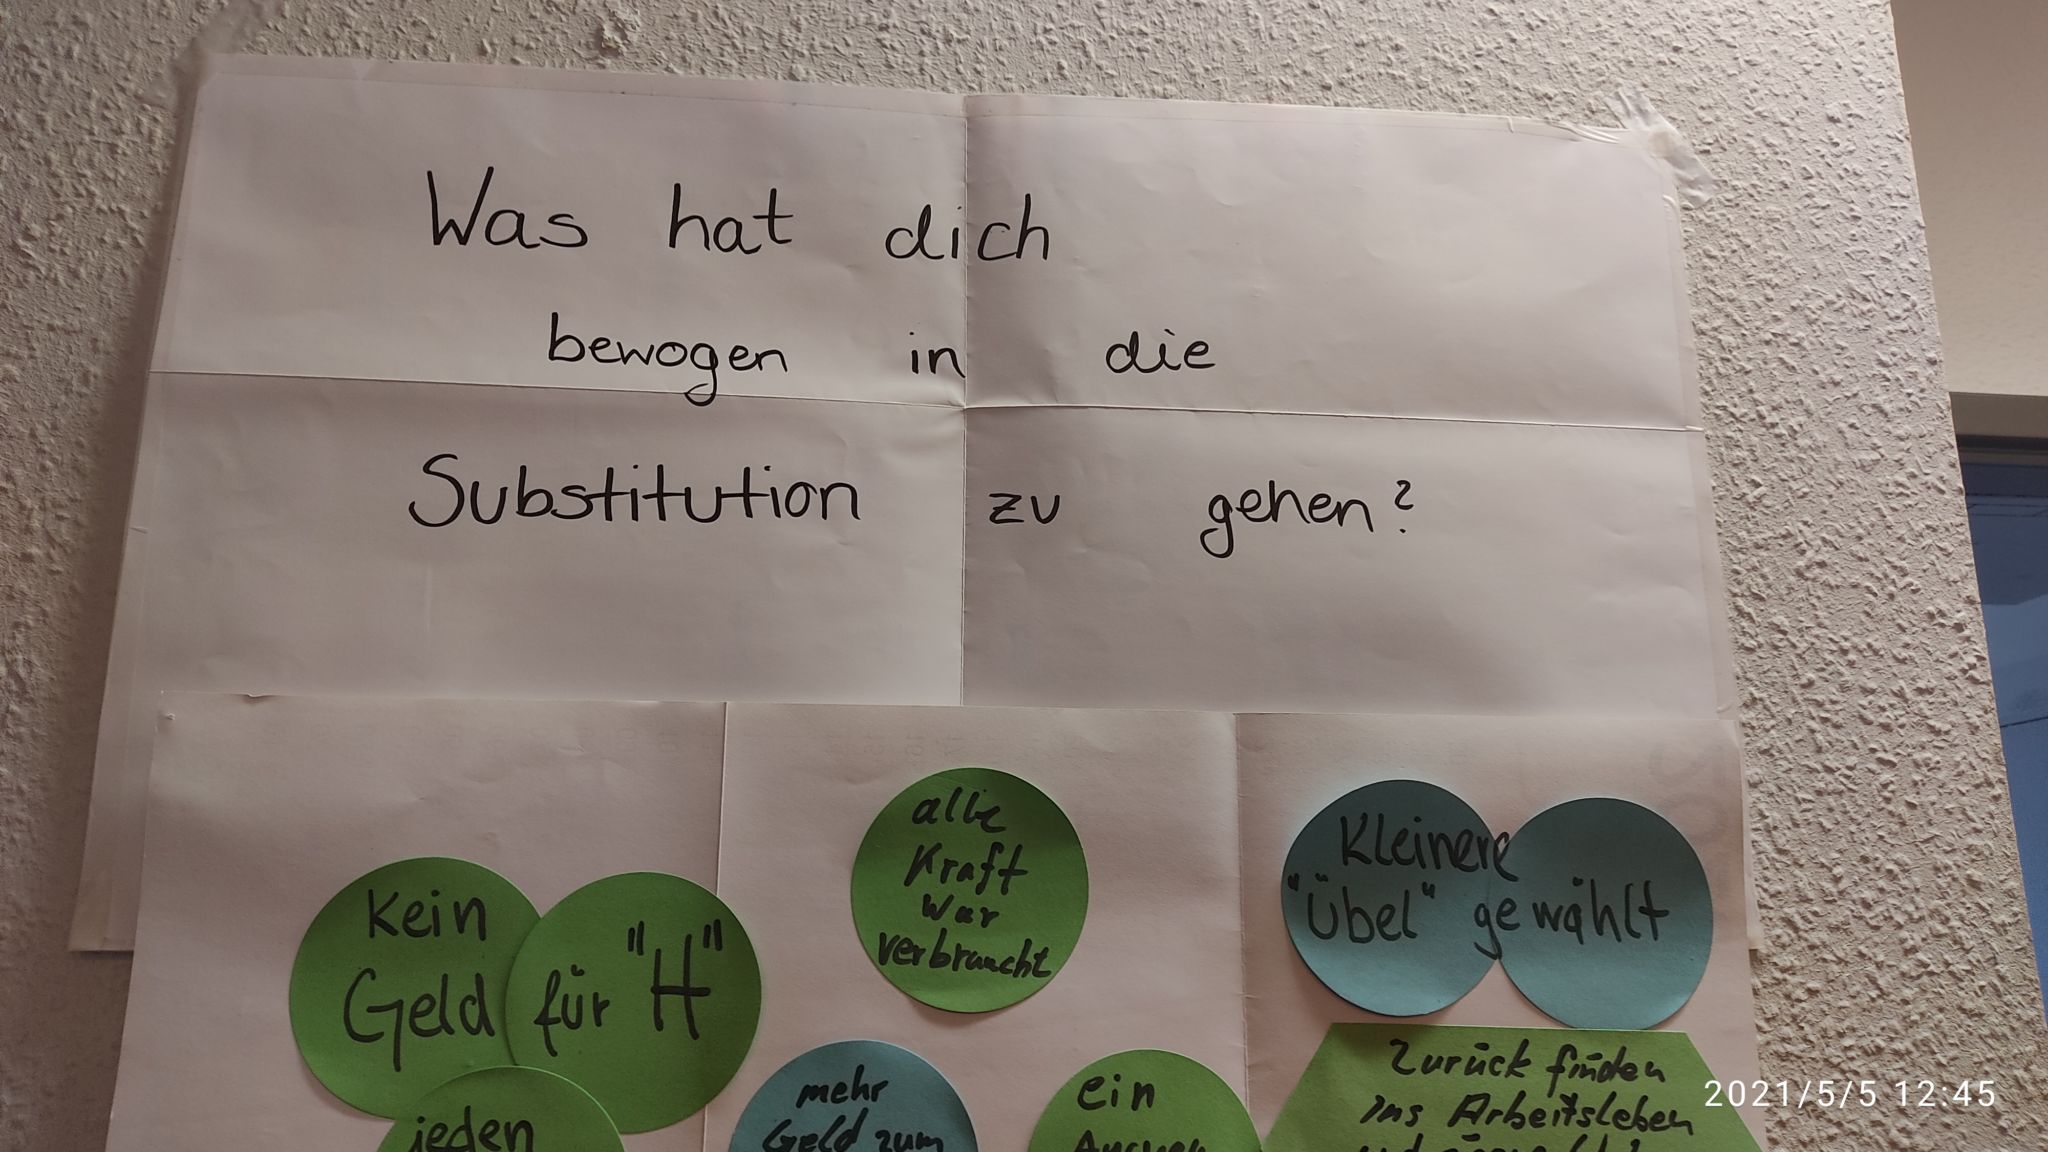 Was hat dich
bewogen in die
Substitution zu gehen?
alle
Kraft
war
verbraucht
Kleinere
"Übel" gewählt
Kein
Geld für "H"
jeden
mehr
Geld zum
ein
Ausweg
Zurück finden
ins Arbeitsleben
und
2021/5/5 12:45